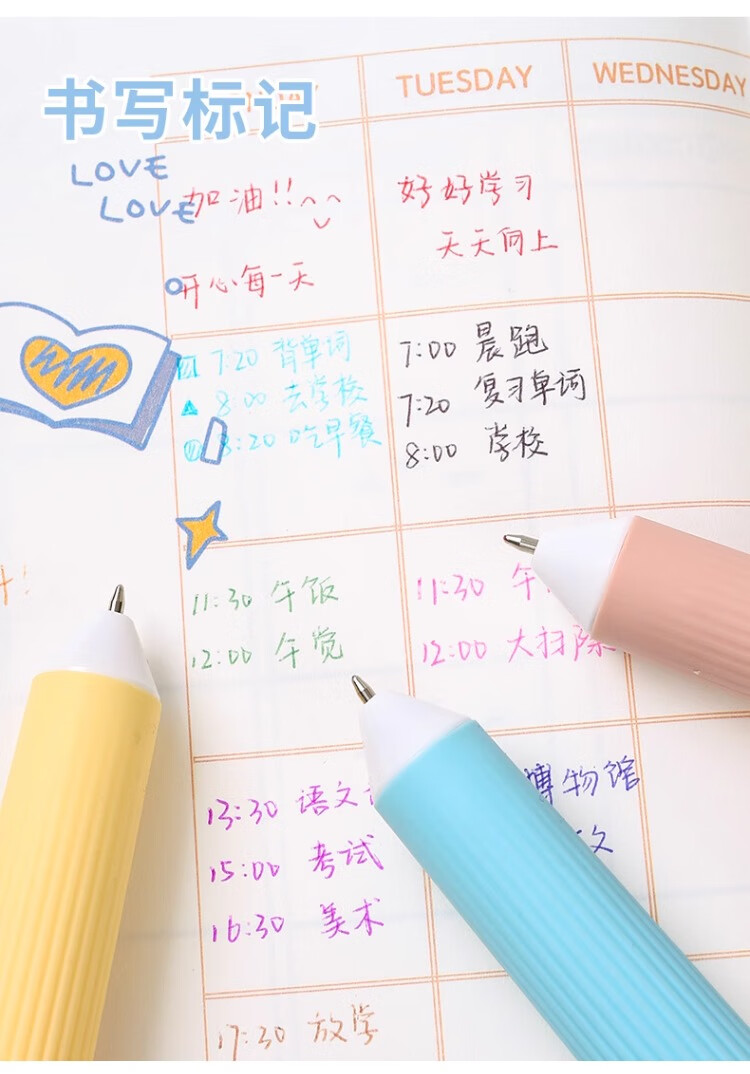 书写标记
TUESDAY
WEDNESDAY
LOVE
LOVE
加油!!
开心每一天
好好学习
天天向上
7:20 背单词
8:00 去学校
8:20 吃早餐
7:00 晨跑
7:20 复习单词
8:00 学校
11:30 午饭
12:00 午觉
11:30 午
12:00 大扫除
13:30 语文
15:00 考试
16:30 美术
博物馆
文
17:30 放学